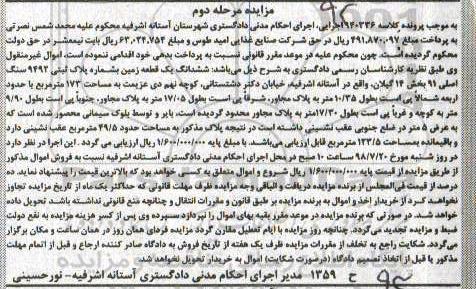 مزایده مرحله دوم
به موجب پرونده کلاسه ۹۴۰۳۳۶اجرایی، اجرای احکام مدنی دادگستری شهرستان آستانه اشرفیه محکوم علیه محمد شمس نصرتی
به پرداخت مبلغ ۴۹۱،۸۷۰،۰۹۷ ریال در حق شرکت صنایع غذایی امید طوس و مبلغ ۶۳،۰۲۴،۷۵۴ ریال بابت نیمعشر در حق دولت
محکوم گردیده اند. چون محکوم علیه در موعد مقرر قانونی نسبت به پرداخت بدهی خود اقدامی ننموده است، اموال غیرمنقول
وی طبق نظریه کارشناسان رسمی دادگستری به شرح ذیل می‌باشد: ششدانگ یک قطعه زمین بشماره پلاک ثبتی ۹۴۹۳ سنگ
اصلی ۹۱ بخش ۱۴ گیلان، واقع در آستانه اشرفیه، خیابان دکتر دشتستانی، کوچه نهم دی عزیمت به مساحت ۱۷۳ مترمربع با حدود
اربعه شمالاً پی است بطول ۱۰/۳۵ متر به پلاک مجاور، شرقاً پی است بطول ۱۷/۰۵ متر به پلاک مجاور، جنوباً پی است بطول ۹/۹۰
متر به کوچه و غرباً پی است بطول ۱۷/۳۰ متر به پلاک مجاور محدود گردیده است، بایر و توسط بلوک سیمانی محصور شده است که
به عرض ۵ متر در ضلع جنوبی عقب نشینی داشته است در نتیجه پلاک مذکور به مساحت حدود ۴۹/۵ مترمربع عقب نشینی دارد
و باقیمانده بمساحت ۱۲۳/۵ مترمربع قابل ارزیابی می‌باشد. با مبلغ پایه ۱/۶۰۰/۰۰۰/۰۰۰ ریال ارزیابی می گردد. این اجرا در نظر دارد
در روز شنبه مورخ ۹۸/۷/۲۰ ساعت ۱۰ صبح در محل اجرای احکام مدنی دادگستری آستانه اشرفیه نسبت به فروش اموال مذکور
از طریق مزایده از قیمت پایه ۱/۶۰۰/۰۰۰/۰۰۰ ریال شروع و اموال متعلق به کسی خواهد بود که بالاترین قیمت را پیشنهاد نماید. ده
درصد از قیمت فی‌المجلس از برنده مزایده دریافت و الباقی وجه مزایده ظرف مهلت قانونی که حداکثر یک ماه از تاریخ مزایده تجاوز
نخواهد کرد از خریدار اخذ و اموال به برنده مزایده بر طبق قانون و مقررات انتقال و چنانچه منع قانونی نداشته باشد تحویل داده
خواهد شد. در صورتی که برنده مزایده در موعد مقرر بقیه بهای اموال را نپردازد سپرده وی پس از کسر هزینه مزایده به نفع دولت
ضبط و مزایده تجدید می گردد. چنانچه روز مزایده با ایام تعطیل مقارن گردد مزایده فردای همان روز در همان ساعت و مکان برگزار
می‌گردد. شکایت راجع به تخلف از مقررات مزایده ظرف یک هفته از تاریخ فروش به دادگاه صادر کننده ارجاع و قبل از اتمام مهلت
مذکور یا قبل از اتخاذ تصمیم دادگاه (درصورت شکایت) اموال به خریدار تحویل نخواهد شد.
ح ۱۳۵۹ مدیر اجرای احکام مدنی دادگستری آستانه اشرفیه- نورحسینی